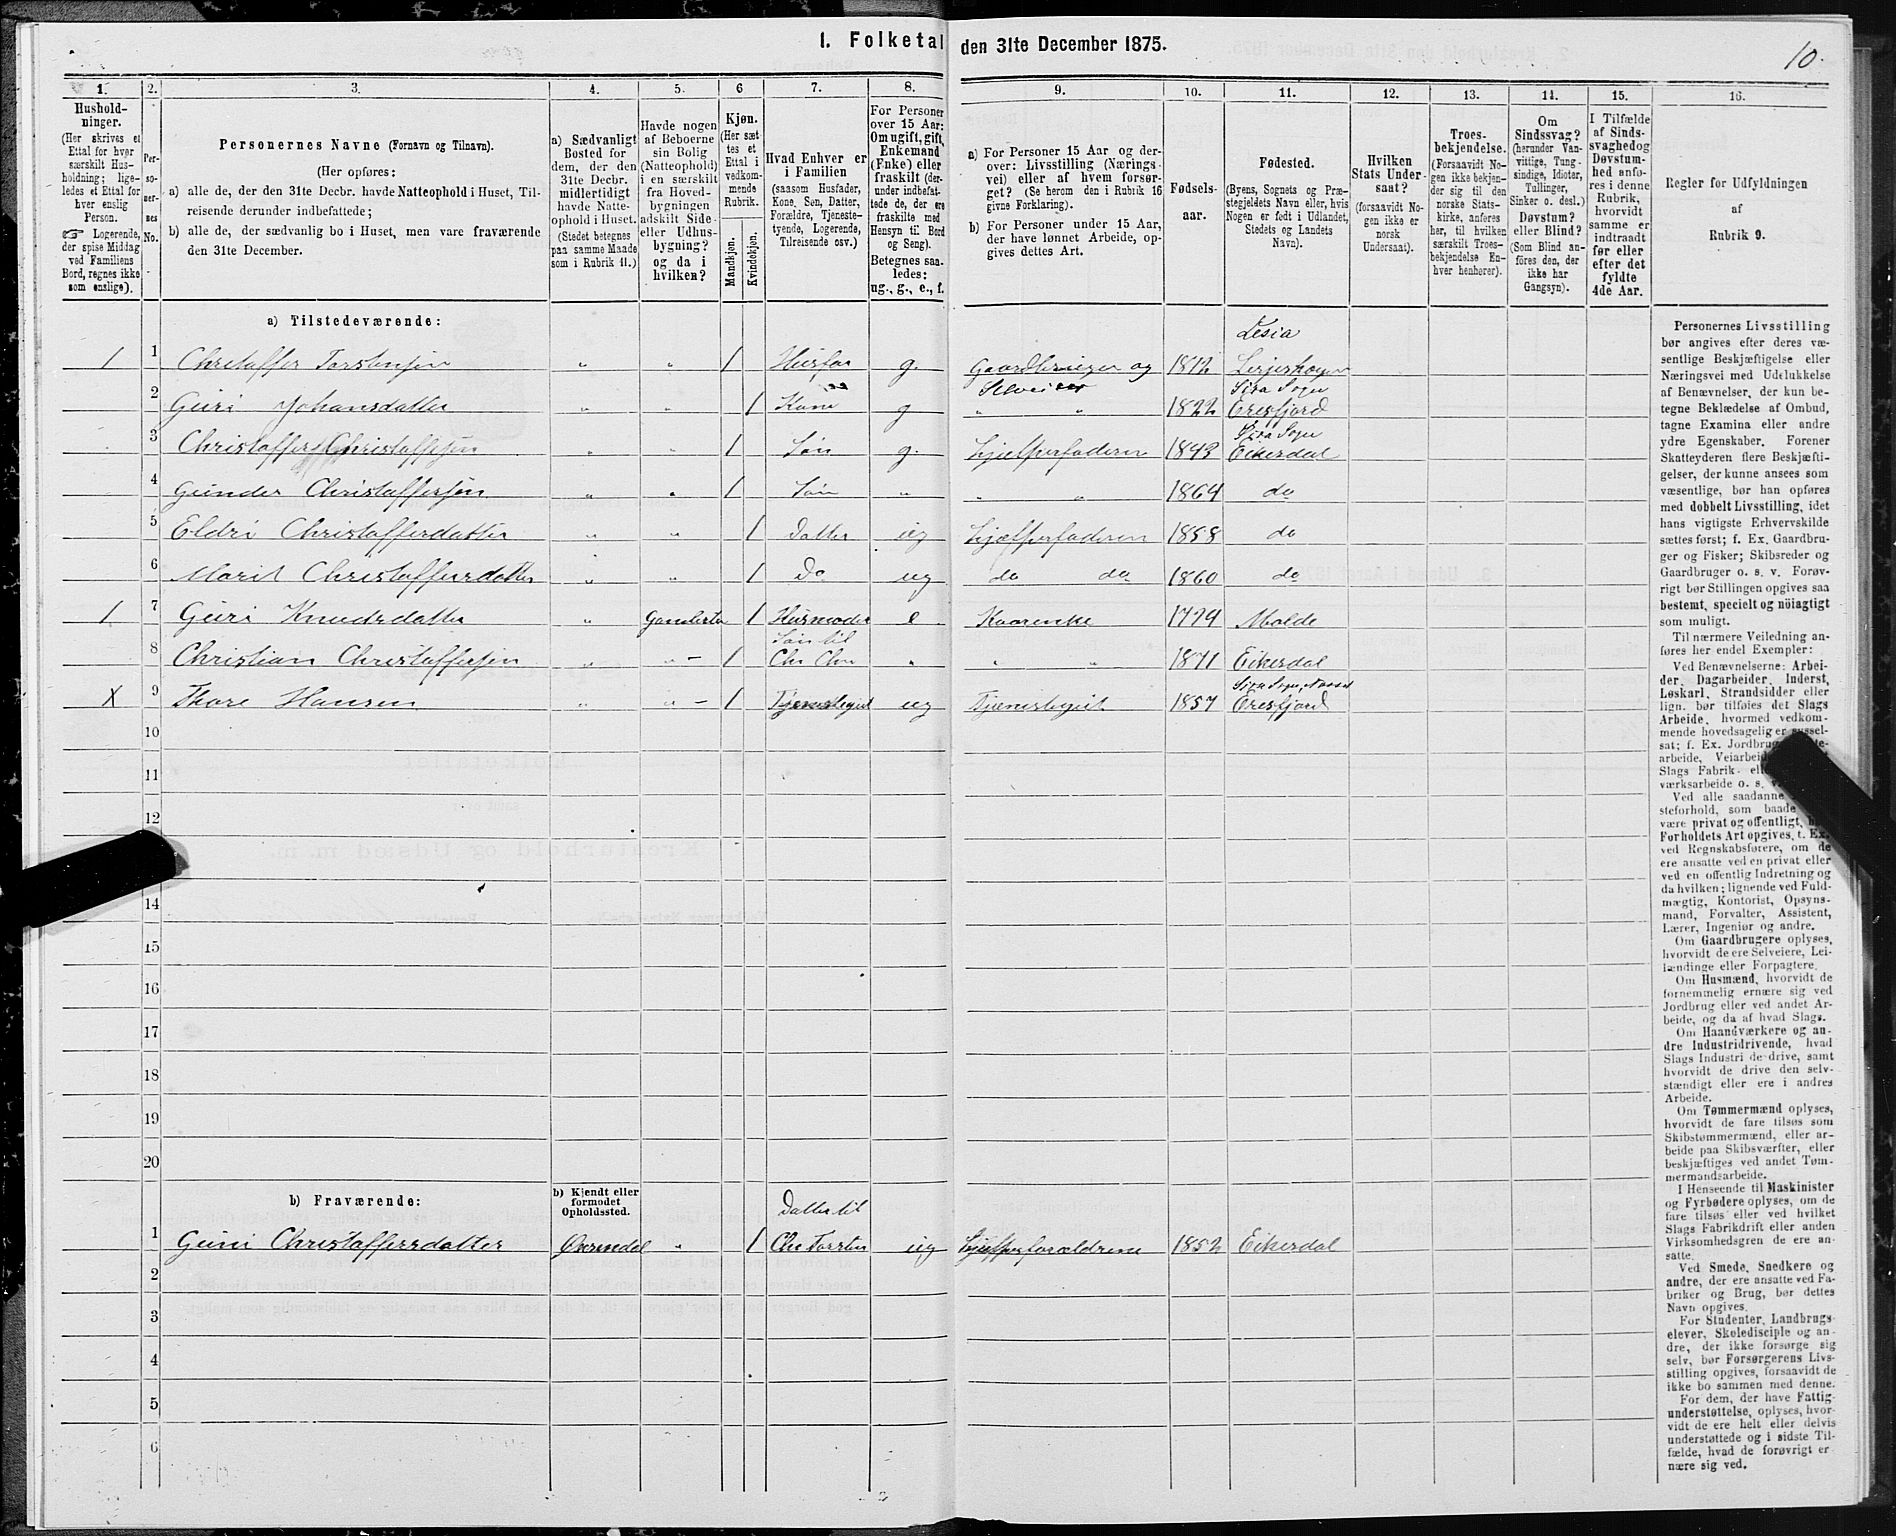 1. Folketal den 31te December 1875.
10.
1.
2.
3.
4.
5.
6
7.
8.
9.
10.
11.
12.
13.
14.
15.
16.
Hushold-
ninger.
(Her skrives et
Ettal for hver
særskilt Hus-
holdning; lige-
ledes et Ettal for
hver enslig
Person.
☞ Logerende,
der spise Middag
ved Familiens
Bord, regnes ikke
som enslige).
Per-
so-
ner-
nes
No.
Personernes Navne (Fornavn og Tilnavn).
(Her opføres:
a) alle de, der den 31te Decbr. havde Natteophold i Huset, Til-
reisende derunder indbefattede;
b) alle de, der sædvanlig bo i Huset, men vare fraværende
den 31te December.
a) Sædvanligt
Bosted for
dem, der den
31te Decbr.
midlertidigt
havde Natte-
ophold i Huset.
(Stedet betegnes
paa samme Maade
som i Rubrik 11.)
Havde nogen
af Beboerne
sin Bolig
(Natteophold)
i en særskilt
fra Hoved-
bygningen
adskilt Side-
eller Udhus-
bygning?
og da i
hvilken?
Kjøn.
(Her sæt-
tes et
Ettal i
vedkom-
mende
Rubrik.
Mandkjøn.
Kvindekjøn.
Hvad Enhver er
i Familien
(saasom Husfader,
Kone, Søn, Datter,
Forældre, Tjeneste-
tyende, Logerende,
Tilreisende osv.)
For Personer
over 15 Aar:
Om ugift, gift,
Enkemand
(Enke) eller
fraskilt (der-
under indbefat-
tede de, der ere
fraskilte med
Hensyn til Bord
og Seng).
Betegnes saa-
ledes:
ug., g., e., f.
a) For Personer 15 Aar og der-
over: Livsstilling (Nærings-
vei) eller af hvem forsør-
get? (Se herom den i Rubrik 16
givne Forklaring).
b) For Personer under 15 Aar,
der have lønnet Arbeide, op-
gives dettes Art.
Fødsels-
aar.
Fødested.
(Byens, Sognets og Præ-
stegjeldets Navn eller, hvis
Nogen er født i Udlandet,
Stedets og Landets
Navn).
Hvilken
Stats Under-
saat?
(forsaavidt No-
gen ikke er
norsk
Undersaat).
Troes-
bekjendelse.
(Forsaavidt No-
gen ikke bekjen-
der sig til den
norske Stats-
kirke, anføres
her, til hvilken
særskilt Troes-
bekjendelse En-
hver henhører).
Om
Sindssvag?
(herunder Van-
vittige, Tung-
sindige, Idioter,
Tullinger,
Sinker o. desl.)
Døvstum?
eller Blind?
(Som Blind an-
föres den, der
ikke har
Gangsyn).
I Tilfælde
af Sinds-
svaghed og
Døvstum-
hed anfø-
res i denne
Rubrik,
hvorvidt
samme er
indtraadt
før eller
efter det
fyldte
4de Aar.
Regler for Udfyldningen
af
Rubrik 9.
a) Tilstedeværende:
Lesia
1 1 Christoffer Torstensen " " 1 Husfar g. Gaardbruger og 1812 Lesjeskogen
Selveier Sira Sogn
2 Guri Johansdatter " " 1 Kone g " " 1822 Eresfjord
Sira Sogn
3 Christoffer Christoffersen " " 1 Søn g. Hjælper faderen 1843 Eikesdal
4 Gunder Christoffersøn " " 1 Søn " " " 1864 do
5 Eldri Christoffersdatter " " 1 Datter ug Hjælper faderen 1858 do
6 Marit Christoffersdatter " " 1 Do ug do do 1860 do
1 7 Guri Knudsdatter " 1 Husmoder e Kaarenke 1779 Molde
Søn til
8 Christian Christoffersøn " " 1 Chr Chr " " " 1871 Eikesdal
Sira Sogn, Næsset
X 9 Thore Hansen " " 1 Tjenestegut ug Tjenestegut 1857 Eresfjord
10
11
12
14
15
16
17
18
19
20
b) Fraværende:
b) Kjendt eller
formodet
Opholdssted.
Datter til
1 Guni Christoffersdatter Øxendal " 1 Chr Torsten ug Hjælper forældrene 1852 Eikesdal
2
3
4
5
6
Personernes Livsstilling
bør angives efter deres væ-
sentlige Beskjæftigelse eller
Næringsvei med Udelukkelse
af Benævnelser, der kun be-
tegne Beklædelse af Ombud,
tagne Examina eller andre
ydre Egenskaber. Forener
Skatteyderen flere Beskjæfti-
gelser, der kunne ansees som
væsentlige, bør han opføres
med dobbelt Livsstilling, idet
hans vigtigste Erhvervskilde
sættes først; f. Ex. Gaardbru-
ger og Fisker; Skibsreder og
Gaardbruger o. s. v. Forøv-
rigt bør Stillingen opgives saa
bestemt, specielt og nöiagtigt
som muligt.
Til nærmere Veiledning an-
føres her endel Exempler:
Ved Benævnelserne: Arbei-
der, Dagarbeider, Inderst,
Løskarl, Strandsidder eller
lign. bør tilføies det Slags
Arbeide, hvormed vedkom-
mende hovedsagelig er syssel-
sat; f. Ex. Jordbrug
arbeide, Veiarbeid
Slags Fabrik- el
værksarbeide o. s. v.
Ved alle saadanne
steforhold, som baade
være privat og offentligt,
Forholdets Art opgives, t. Ex.
ved Regnskabsførere, om de
ere ansatte ved en privat eller
ved en offentlig Indretning og
da hvilken; lignende ved Fuld-
mægtig, Kontorist, Opsyns-
mand, Forvalter, Assistent,
Lærer, Ingeniør og andre.
Om Gaardbrugere oplyses,
hvorvidt de ere Selveiere, Lei-
lændinge eller Forpagtere.
Om Husmænd, hvorvidt de
fornemmelig ernære sig ved
Jordbrug eller ved andet Ar-
beide, og da af hvad Slags.
Om Haandværkere og an-
dre Industridrivende, hvad
Slags Industri de drive, samt
hvorvidt de drive den selv-
stændigt eller ere i andres
Arbeide.
Om Tømmermænd oplyses,
hvorvidt de fare tilsøs som
Skibstømmermænd, eller ar-
beide paa Skibsværfter, eller
beskjæftiges ved andet Tøm-
mermandsarbeide.
I Henseende til Maskinister
og Fyrbødere oplyses, om de
fare tilsøs eller ved hvilket
Slags Fabrikdrift eller anden
Virksomhedsgren de ere an-
satte.
Ved Smede, Snedkere og
andre, der ere ansatte ved Fa-
briker og Brug, bør dettes
Navn opgives.
For Studenter, Landbrugs-
elever, Skoledisciple og an-
dre, der ikke forsørge sig
selv, bør Forsørgerens Livs-
stilling opgives, forsaavidt de
ikke bo sammen med denne.
For dem, der have Fattig-
understøttelse, oplyses, hvor-
vidt de ere helt eller delvis
understøttede og i sidste Til-
fælde, hvad de forøvrigt er-
nære sig ved.